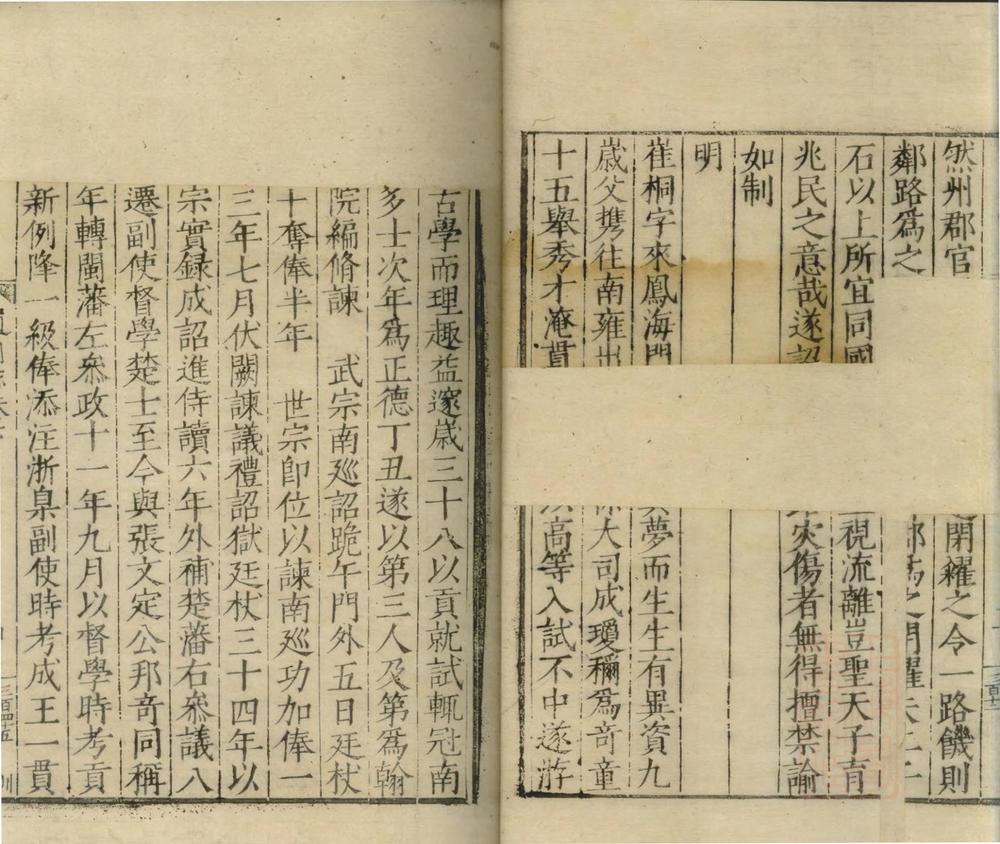 然州郡官閉糴之令一路饑則
鄰路爲之
石以上所宜同國視流離豈聖天子育
兆民之意哉遂詔灾傷者無得擅禁諭
如制
明
崔桐字來鳳海門夢而生生有異資九
歲父携往南雍大司成瓊稱爲奇童
十五舉秀才淹貫以高等入試不中遂游
古學而理趣益邃歲三十八以貢就試輒冠南
多士次年爲正德丁丑遂以第三人及第爲翰
院編脩諫 武宗南廵詔跪午門外五日廷杖
十奪俸半年 世宗即位以諫南廵功加俸一
三年七月伏闕諫議禮詔獄廷杖三十四年以
宗實録成詔進侍讀六年外補楚藩右叅議八
遷副使督學楚士至今與張文定公邦竒同稱
年轉閩藩左叅政十一年九月以督學時考貢
新例降一級俸添注浙臬副使時考成王一貫